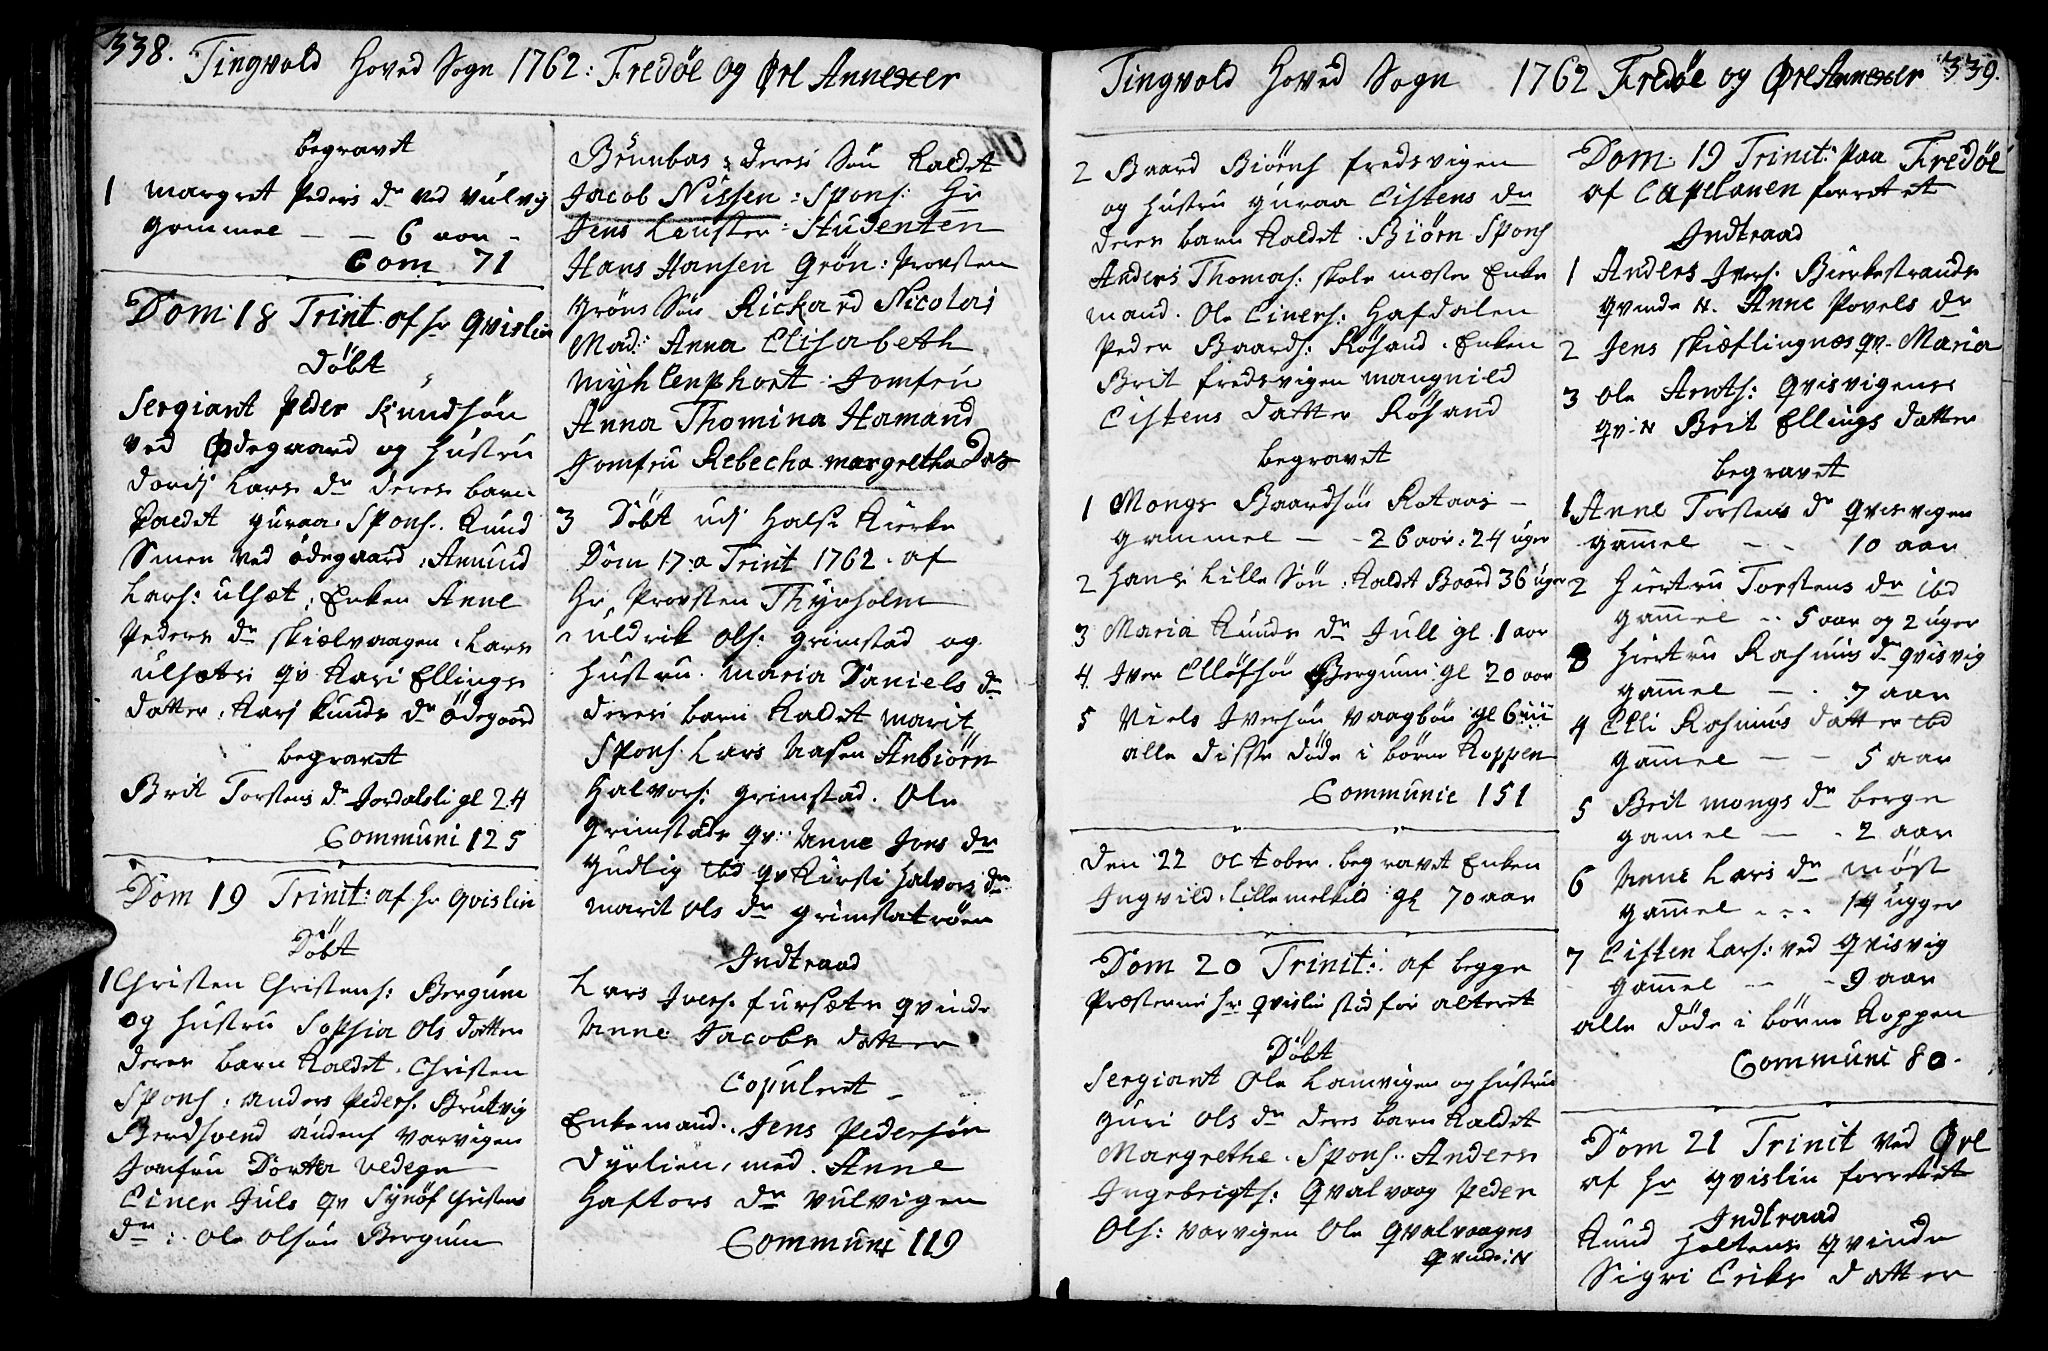 338. Tingvold Hoved Sogn 1762: Fredöe og Ørl Annexer
begravet
1 margret Peders dr ved vulvig
gammel — — 6 aar -
Com 71
Dom: 18 Trinit. af hr Qvislin
döbt
Sergiant Peder Knudsön
ved Ødegaard og Hustru
Lars dr deres barn
kaldet guraa. Spons. Knud
ved ödegaard, Amund
Lars: ulsæt, Enken Anne
Peders dr skiælvaagen. Lars
ulsæts qv Kari Ellings
datter, Kari knuds dr ödegaard
begravet
Brit Torstens dr Jordalsli gl 24
Communi 125
Dom 19 Trinit: af hr Qvislin
Döbt
1 Christen Christens: Bergum
og hustru Sophia Ols datter
deres barn kaldet. Christen
Spons: anders Peders. Brutvig
Vorvigen
Jomfru Dorthea vedege
Einer Juls qv Synöf Christens
dr: Ole Olsön Bergum
deres Sön kaldet
Jacob Nissen: Spons: Hr
Jens Leuster: Studenten
Hans Hansen Grön: Provsten
gröns Sön Rickard Nicolai
Mad: Anna Elisabeth
Myhlenphort: Jomfru
Anna Thomina Hamand
Jomfru Rebecha margretha Das
3 Döbt udj Halse Kirke
Dom 17. a Trinit 1762. af
Hr. Provsten Thyrholm
uldrik Ols: grimstad og
Hustru. Maria Daniels dr
deres barn kaldet marit
Spons. Lars Aasen Anbiörn
Halvors: grimstad. Ole
grimstads qv: Anne Jons dr
gudlig ibd qv Kirsti Halvors dr
marit Ols dr grimstatröen
Indtraad
Lars Ivers. fursæts qvinde
Anne Jacobs datter
Copuleret
Enkemand. Jens Pedersön
Dyrlien, med. Anne
Haftors dr vulvigen
Communi 119
Tingvold Hoved Sogn 1762 Fredöe og Ørl Annexer 339.
2 Baard Biörns fredsvigen
og hustru guraa Eistens dr
deres barn kaldet. Biörn Spons
Anders Thomas: skole mester Enke
mand. Ole Einers: Hafdalen
Peder Baards: Rösand. Enken
Brit fredsvigen mangnild
Eistens datter Rösand
begravet
1 Mongs Baardsön Rotaas —
gammel — - 26 aar. 24 uger
2 Hans Lille Sön. kaldet Baard 36 uger
3 Maria Knuds dr Jull gl. 1 aar
4 Iver Ellöfsön Bergum gl 20 aar
5 Niels Iversön vaagböe gl 6
alle disse döde i börne koppen
Communic 151
Den 22 October. begravet Enken
Ingvild. Lille melkild gl 70 aar
Dom 20 Trinit: af begge
Præsterne hr. Qvislin stod for alteret
Döbt
Sergiant Ole Lamvigen og hustru
guri Ols dr deres barn kaldet
Margrethe. Spons. Anders
Ingebrigts: Qvalvaag Peder
Ols: Vorvigen Ole Qvalvaagens
Qvinde: N
Dom. 19 Trinit: paa Fredöe
af Capelanen forrettet
Indtraad
1 Anders Ivers. Bierkestrands
qvinde N. Anne Povels dr
2 Jens skieflingnæs qv. Maria
3 Ole Arnts: Qvisvigens
qv: N Brit Ellings datter
begravet
1 Anne Torstens dr Qvisvigen
gammel - - 10 aar
2 Hiertru Torstens dr ibd
gammel - 5 aar og 2 uger
3 Hiertru Rasmus dr qvisvig
gammel — . 7 aar
4 Elli Rasmus datter ibd
gammel — - 5 aar
5 Brit mongs dr berge
gamel — . 2 aar
6 Anne Lars dr möst
gammel . . . 14 ugger
7 Eisten Lars: ved Qvisvig
gammel — - 9 aar
alle döde i börne koppen
Communi 80.
Dom 21 Trinit ved Ørl
af hr qvislin forrettet
Indtraad
Knud Holtens qvinde
Sigri Eriks datter